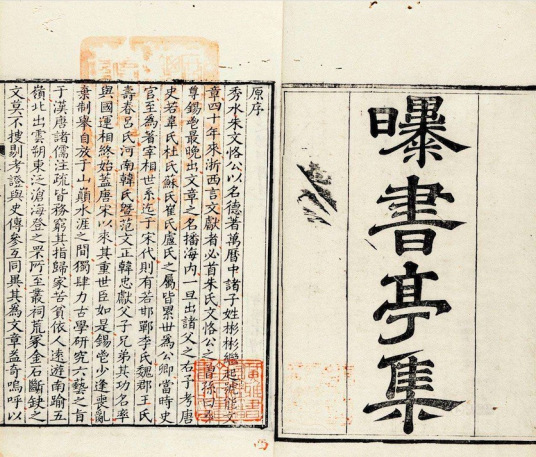 曝書亭集
原序
秀水朱文恪公以名德著萬曆中諸子姓彬彬繼起號能文
章四十年來浙西言文獻者必首朱氏文恪公之曾孫曰彝
尊錫鬯最晚出文章之名播海内一旦出諸父之右予考唐
史若韋氏杜氏蘇氏崔氏盧氏之屬皆累世為公卿當時史
官至為著宰相世系迄于宋代則有若邯鄲李氏魏郡王氏
壽春呂氏河南韓氏曁范文正韓忠獻父子兄弟其功名率
與國運相終始蓋唐宋以來其重世臣如是錫鬯少逢喪亂
棄制舉自放于山巔水涯之間獨肆力古學研究六藝之旨
于漢唐諸儒注疏皆務窮其指歸家苦貧依人遠遊南踰五
嶺北出雲朔東泛滄海登之罘所至叢祠荒冢金石斷缺之
文莫不搜剔考證與史傳參互同異其為文章益奇嗚呼以